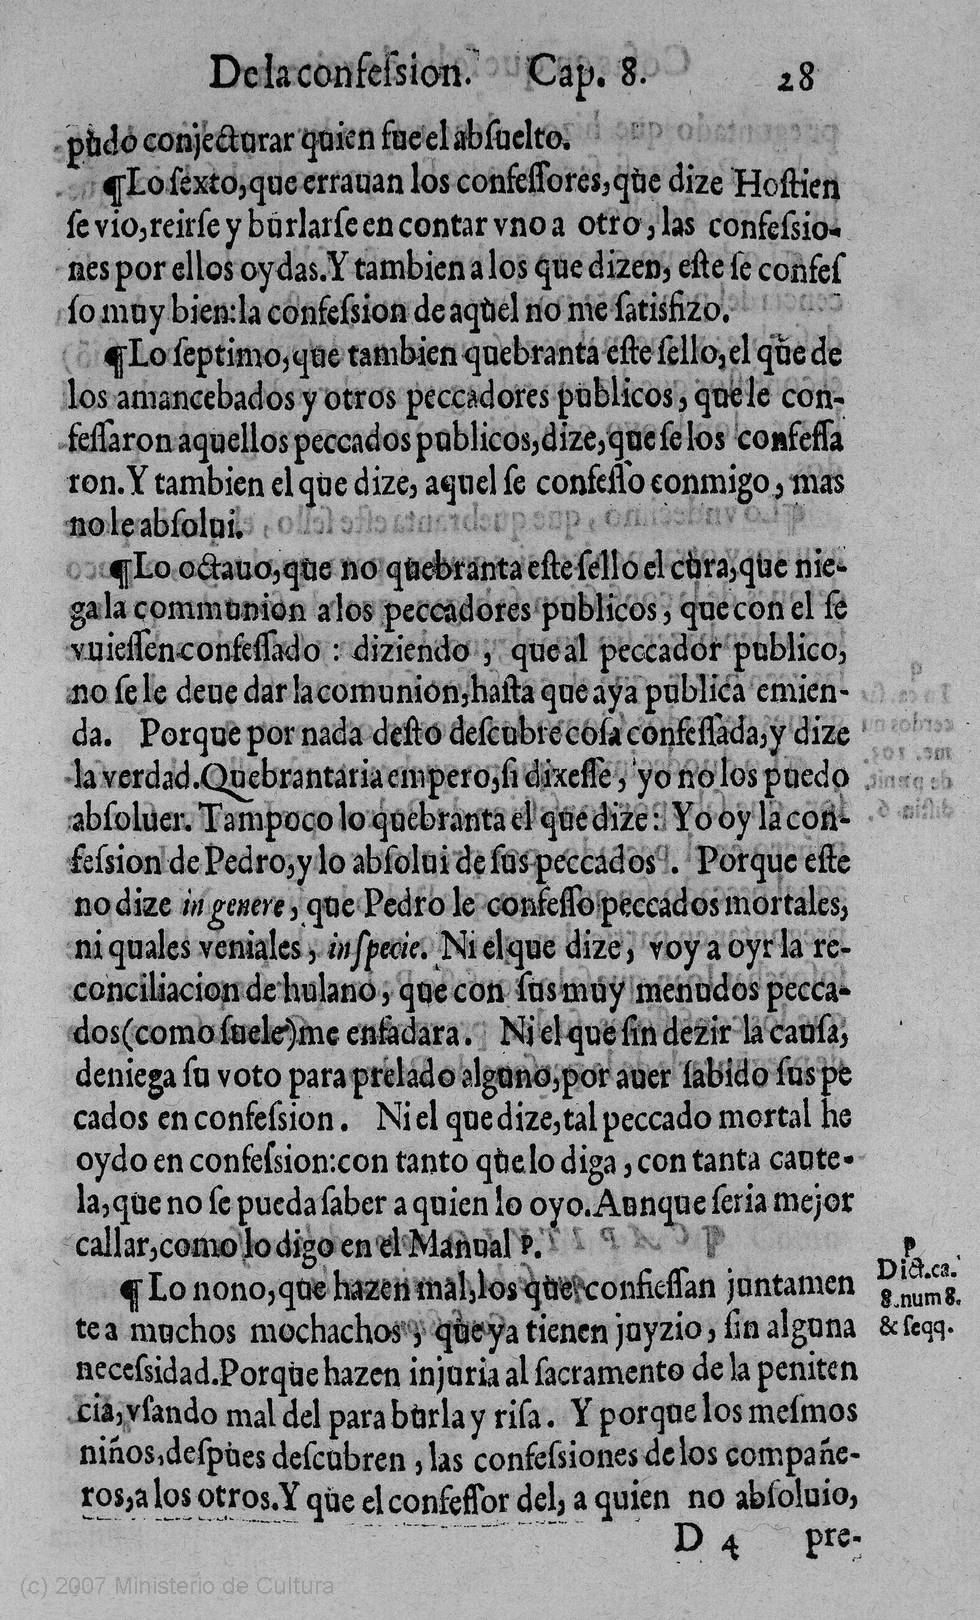 De la confeſsion. Cap. 8. 28
pudo conjecturar quien fue el abſuelto.
¶Lo ſexto, que errauan los confeſſores, que dize Hoſtien
ſe vio, reirſe y burlarſe en contar vno a otro, las confeſsio-
nes por ellos oydas. Y tambien a los que dizen, eſte se confeſ
ſo muy bien: la confeſsion de aquel no me ſatisfizo.
¶Lo ſeptimo, que tambien quebranta eſte ſello, el que de
los amancebados y otros peccadores publicos, que le con-
feſſaron aquellos peccados publicos, dize, que ſe los confeſſa
ron. Y tambien el que dize, aquel se confeſſo conmigo, mas
no le abſolui.
¶Lo octauo, que no quebranta eſte ſello el cura, que nie-
ga la communion a los peccadores publicos, que con el ſe
vuieſſen confeſſado : diziendo , que al peccador publico,
no ſe le deue dar la comunion, haſta que aya publica emien-
da. Porque por nada deſto deſcubre coſa confeſſada, y dize
la verdad. Quebrantaria empero, ſi dixeſſe, yo no los puedo
abſoluer. Tampoco lo quebranta el que dize: Yo oy la con-
feſsion de Pedro, y lo abſolui de sus peccados . Porque eſte
no dize in genere, que Pedro le confeſſo peccados mortales,
ni quales veniales, in ſpecie. Ni el que dize, voy a oyr la re-
conciliacion de hulano, que con ſus muy menudos pecca-
dos (como ſuele) me enfadara. Ni el que ſin dezir la cauſa,
deniega ſu voto para prelado alguno, por auer ſabido ſus pe
cados en confeſsion. Ni el que dize, tal peccado mortal he
oydo en confeſsion: con tanto que lo diga, con tanta caute-
la, que no se pueda ſaber a quien lo oyo. Aunque ſeria mejor
callar, como lo digo en el Manual p.
p
Dict. ca.
8. num 8.
& ſeqq.
¶ Lo nono, que hazen mal, los que confieſſan juntamen
te a muchos mochachos , que ya tienen juyzio, ſin alguna
neceſsidad. Porque hazen injuria al ſacramento de la peniten
cia, vſando mal del para burla y riſa. Y porque los meſmos
niños, deſpues deſcubren , las confeſsiones de los compañe-
ros, a los otros. Y que el confeſſor del, a quien no abſoluio,
D 4 pre-
(c) 2007 Ministerio de Cultura